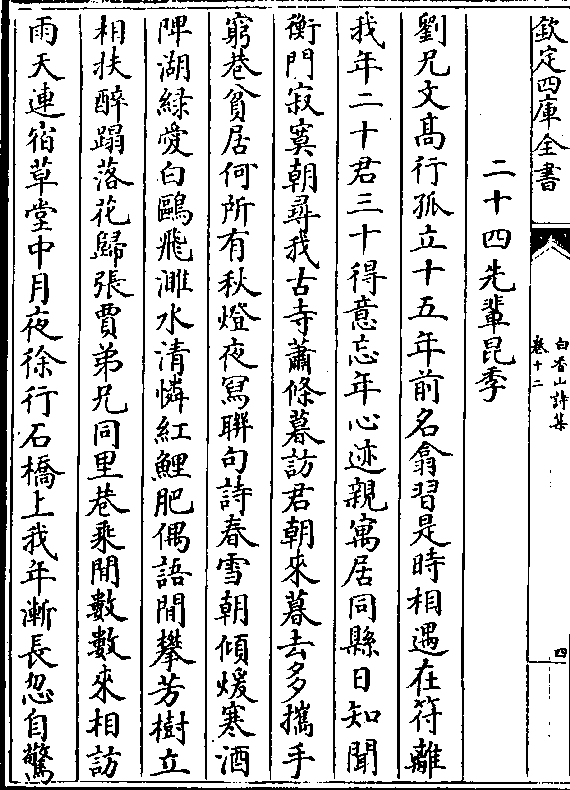 欽定四庫全書
白香山詩集
卷十二
四
二十四先輩昆季
劉兄文髙行孤立十五年前名翕習是時相遇在符離
我年二十君三十得意忘年心迹親寓居同縣日知聞
衡門寂寞朝尋我古寺蕭條暮訪君朝來暮去多攜手
窮巷貧居何所有秋燈夜冩聯句詩春雪朝傾煖寒酒
陴湖緑愛白鷗飛濉水清憐紅鯉肥偶語閒攀芳樹立
相扶醉蹋落花歸張賈弟兄同里巷乘閒數數來相訪
雨天連宿草堂中月夜徐行石橋上我年漸長忽自驚